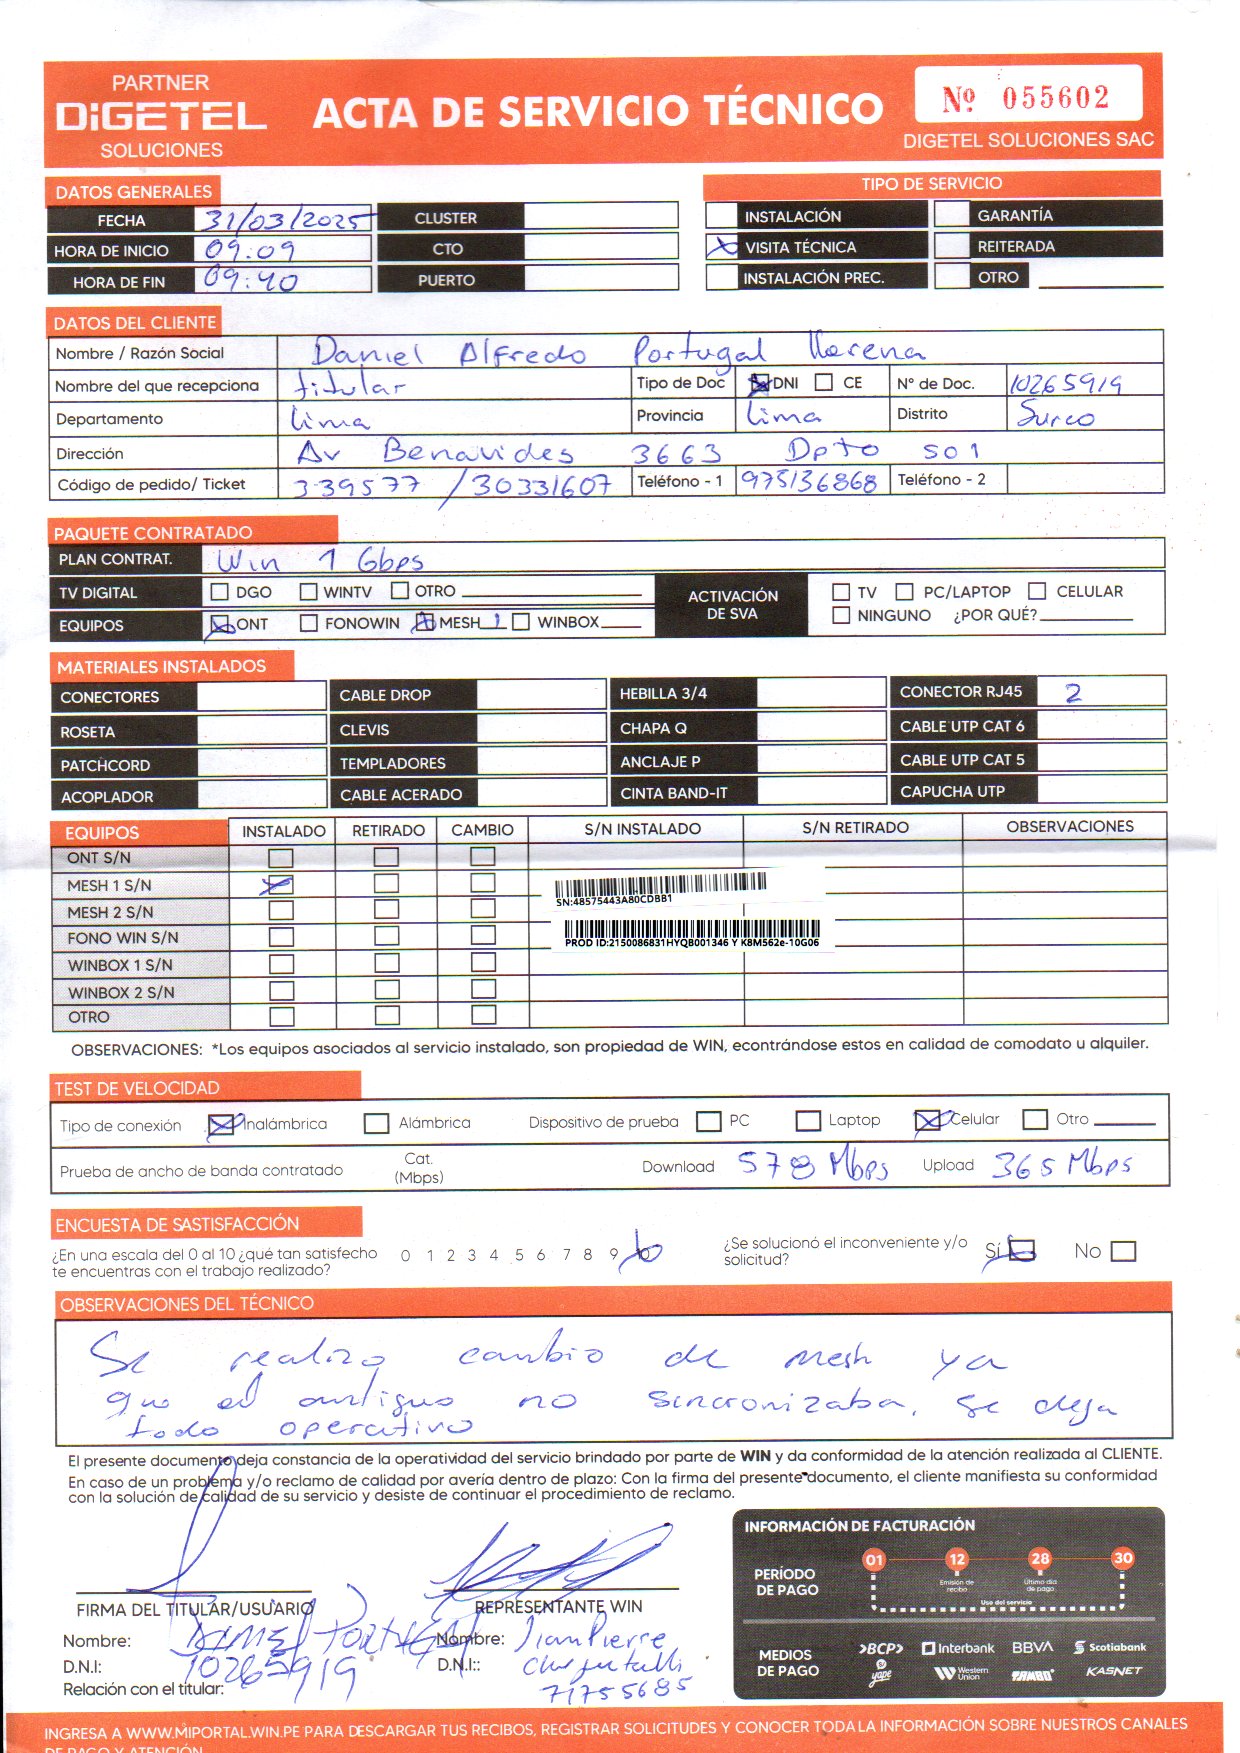 PARTNER
DiGETEL
SOLUCIONES
ACTA DE SERVICIO TÉCNICO
Nº 055602
DIGETEL SOLUCIONES SAC
DATOS GENERALES
TIPO DE SERVICIO
FECHA 31/03/2025 CLUSTER INSTALACIÓN GARANTÍA
HORA DE INICIO 09:09 CTO VISITA TÉCNICA REITERADA
HORA DE FIN 09:40 PUERTO INSTALACIÓN PREC. OTRO
DATOS DEL CLIENTE
Nombre / Razón Social Daniel Alfredo Portugal Llerena
Nombre del que recepciona titular Tipo de Doc DNI CE N° de Doc. 10265919
Departamento Lima Provincia Lima Distrito Surco
Dirección Av Benavides 3663 Dpto 501
Código de pedido/ Ticket 339577 / 30331607 Teléfono - 1 975136868 Teléfono - 2
PAQUETE CONTRATADO
PLAN CONTRAT. Win 1 Gbps
TV DIGITAL DGO WINTV OTRO ACTIVACIÓN DE SVA TV PC/LAPTOP CELULAR
EQUIPOS ONT FONOWIN MESH 1 WINBOX NINGUNO ¿POR QUÉ?
MATERIALES INSTALADOS
CONECTORES CABLE DROP HEBILLA 3/4 CONECTOR RJ45 2
ROSETA CLEVIS CHAPA Q CABLE UTP CAT 6
PATCHCORD TEMPLADORES ANCLAJE P CABLE UTP CAT 5
ACOPLADOR CABLE ACERADO CINTA BAND-IT CAPUCHA UTP
EQUIPOS INSTALADO RETIRADO CAMBIO S/N INSTALADO S/N RETIRADO OBSERVACIONES
ONT S/N
MESH 1 S/N
SN:48575443A80CDBB1
MESH 2 S/N
FONO WIN S/N
PROD ID:2150086831HYQB001346 Y K8M562e-10G06
WINBOX 1 S/N
WINBOX 2 S/N
OTRO
OBSERVACIONES: *Los equipos asociados al servicio instalado, son propiedad de WIN, econtrándose estos en calidad de comodato u alquiler.
TEST DE VELOCIDAD
Tipo de conexión Inalámbrica Alámbrica Dispositivo de prueba PC Laptop Celular Otro
Prueba de ancho de banda contratado Cat. (Mbps) Download 578 Mbps Upload 365 Mbps
ENCUESTA DE SASTISFACCIÓN
¿En una escala del 0 al 10 ¿qué tan satisfecho 0 1 2 3 4 5 6 7 8 9 10 ¿Se solucionó el inconveniente y/o Sí No
te encuentras con el trabajo realizado? solicitud?
OBSERVACIONES DEL TÉCNICO
Se realizo cambio de mesh ya
que el antiguo no sincronizaba, se deja
todo operativo
El presente documento deja constancia de la operatividad del servicio brindado por parte de WIN y da conformidad de la atención realizada al CLIENTE.
En caso de un problema y/o reclamo de calidad por avería dentro de plazo: Con la firma del presente documento, el cliente manifiesta su conformidad
con la solución de calidad de su servicio y desiste de continuar el procedimiento de reclamo.
FIRMA DEL TITULAR/USUARIO REPRESENTANTE WIN
Nombre: DANIEL PORTUGAL Nombre: JeanPierre
D.N.I: 10265919 D.N.I::
71755685
Relación con el titular:
INFORMACIÓN DE FACTURACIÓN
PERÍODO DE PAGO 01 12 28 30
Emisión de recibo Último día de pago
Uso del servicio
MEDIOS DE PAGO BCP Interbank BBVA Scotiabank
yape Western Union TAMBO KASNET
INGRESA A WWW.MIPORTAL.WIN.PE PARA DESCARGAR TUS RECIBOS, REGISTRAR SOLICITUDES Y CONOCER TODA LA INFORMACIÓN SOBRE NUESTROS CANALES
DE PAGO Y ATENCIÓN